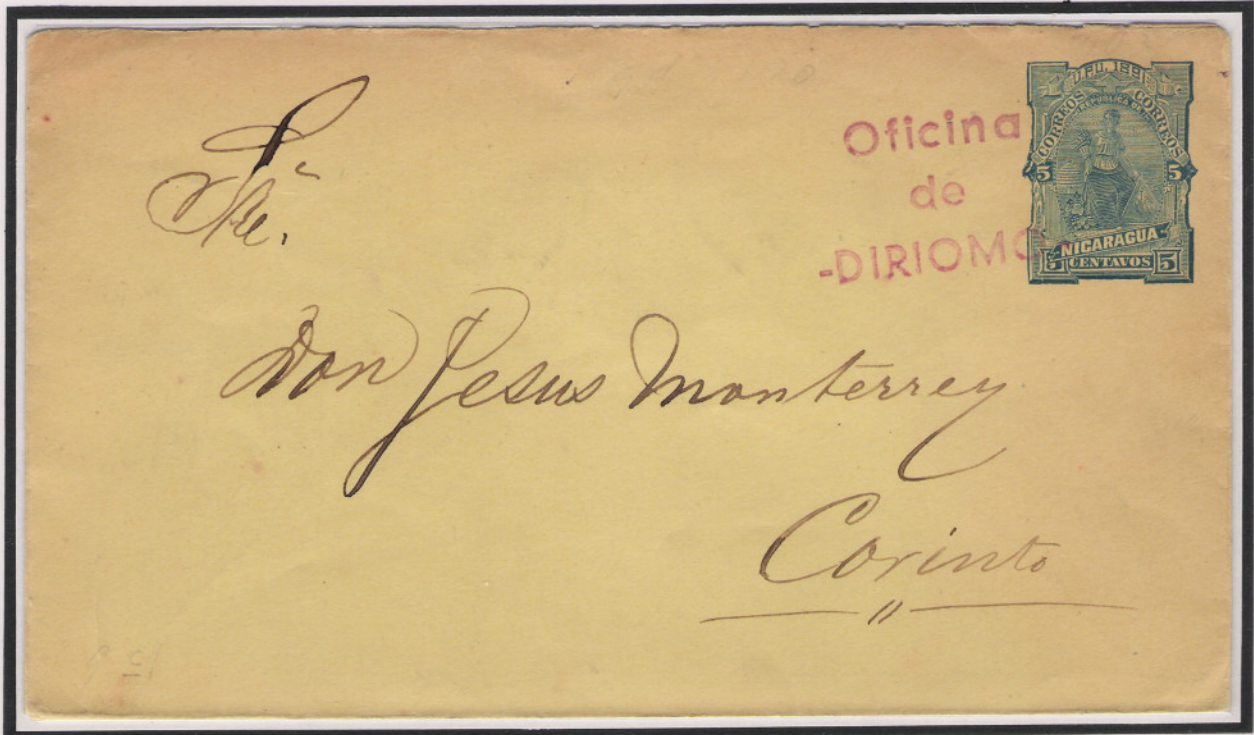 Sr.
Oficina
de
-DIRIOMO-
U.P.U. 1891
CORREOS CORREOS
REPUBLICA DE
5 5
NICARAGUA
5 CENTAVOS 5
Don Jesus Monterrey
Corinto